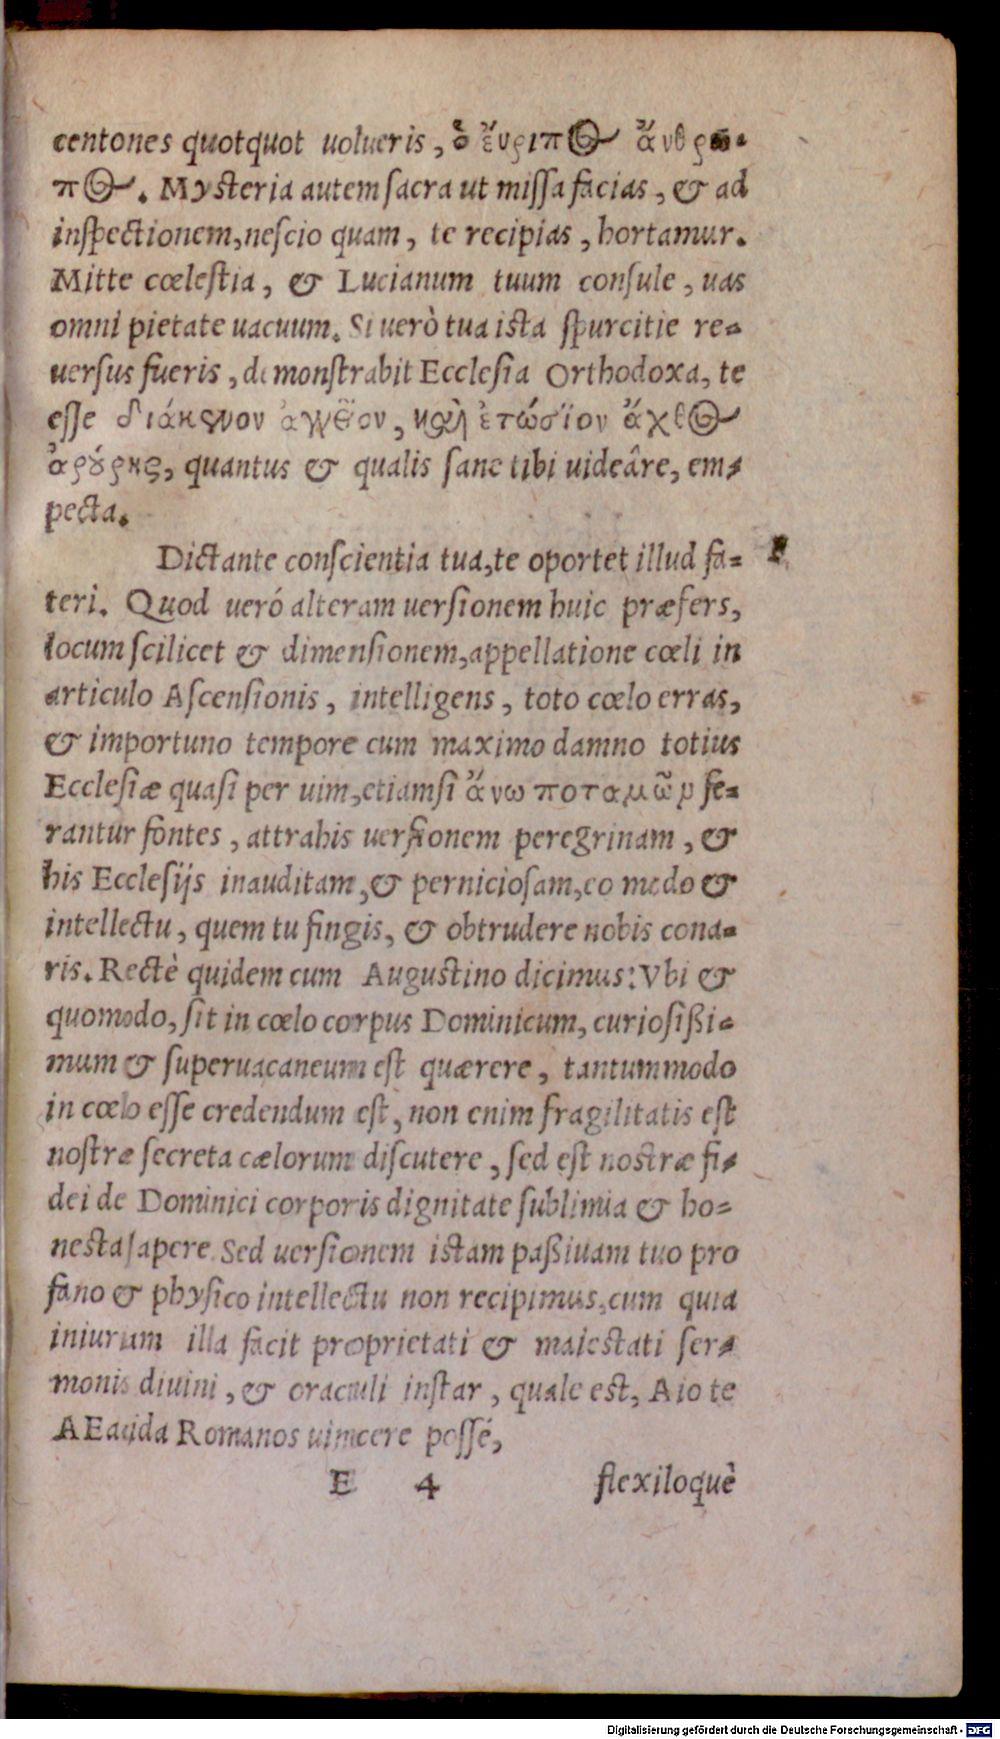 centones quotquot uolueris, ὁ ἔυριπος ἄνθρω-
πος. Mysteria autem sacra ut missa facias, & ad
inspectionem, nescio quam, te recipias, hortamur.
Mitte cœlestia, & Lucianum tuum consule, uas
omni pietate uacuum. Si uerò tua ista spurcitie re-
uersus fueris, demonstrabit Ecclesia Orthodoxa, te
esse διάκονον ἀγαθὸν, καὶ ἐτώσϊον ἄχθος
ἀρούρης, quantus & qualis sane tibi uideâre, em-
pecta.
Dictante conscientia tua, te oportet illud fa-
teri. Quod ueró alteram uersionem huic præfers,
locum scilicet & dimensionem, appellatione cœli in
articulo Ascensionis, intelligens, toto cœlo erras,
& importuno tempore cum maximo damno totius
Ecclesiæ quasi per uim, etiamsi ἄνω ποταμῶν fe-
rantur fontes, attrahis uersionem peregrinam, &
his Ecclesijs inauditam, & perniciosam, eo modo &
intellectu, quem tu fingis, & obtrudere nobis cona-
ris. Rectè quidem cum Augustino dicimus: Vbi &
quomodo, sit in cœlo corpus Dominicum, curiosißi-
mum & superuacaneum est quærere, tantummodo
in cœlo esse credendum est, non enim fragilitatis est
nostræ secreta cælorum discutere, sed est nostræ fi-
dei de Dominici corporis dignitate sublimia & ho-
nesta sapere. Sed uersionem istam paßiuam tuo pro
fano & physico intellectu non recipimus, cum quia
iniurum illa facit proprietati & maiestati ser-
monis diuini, & oraculi instar, quale est, Aio te
AEacida Romanos uincere possé,
E 4 flexiloquè
Digitalisierung gefördert durch die Deutsche Forschungsgemeinschaft - DFG